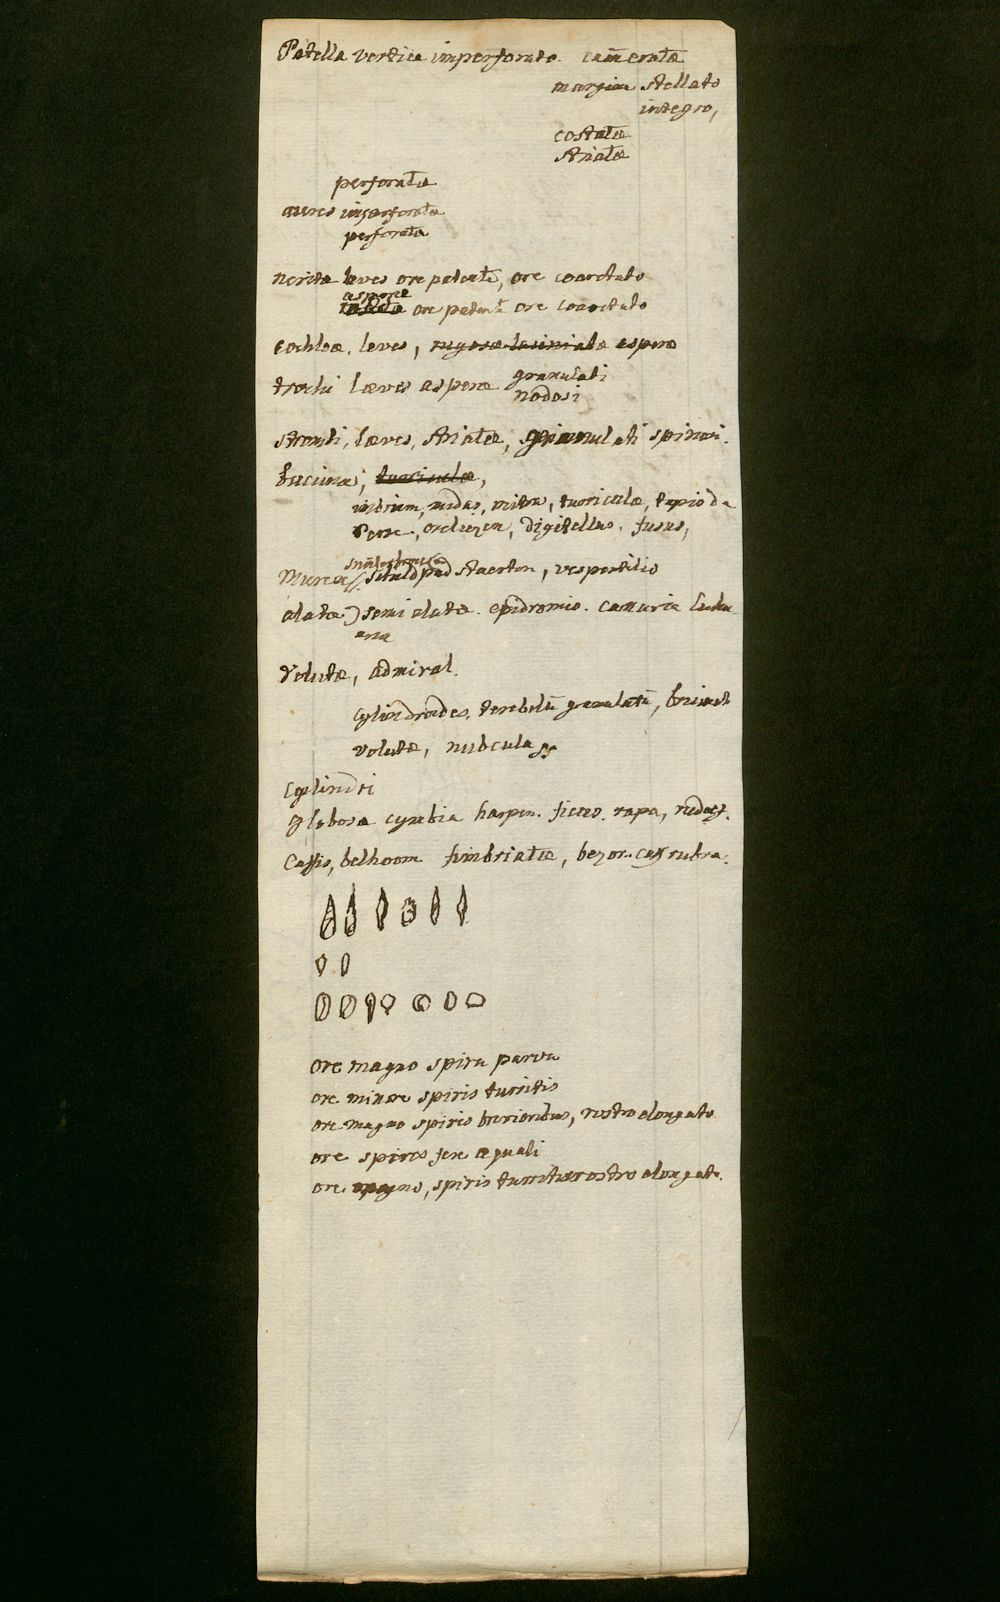 Patella vertice imperforato. cam̄eratæ
margine stellato
integro,
costatæ
striatæ
perforatæ
aures imperforatæ
perforatæ
neritæ leves ore patente, ore coarctato
asperæ
ore patente ore coarctato
cochleæ, leves, rugosæ laciniatæ asperæ
trochi læves asperæ granulati
nodosi
strombi, læves, striatæ, granulati spinosi.
buccina, turriculæ,
midas, mitra, turriculæ,
digitellus. fusus,
Murex staerten, vespertilio
alatæ semi alatæ. epidromis. canarie
Volutæ, admiral.
cylindroides, granulatū,
volutæ, nubecula
Cylindri
globosa cymbia harpen. ficus. rapa,
Cassis, belhoorn fimbriatæ, bezoar. cass rubra.
ore magno spira parva
ore minore spiris turritis
ore magno spiris brevioribus, rostro elongato
ore spiros fere æquali
ore magno, spiris turritis rostro elongato.